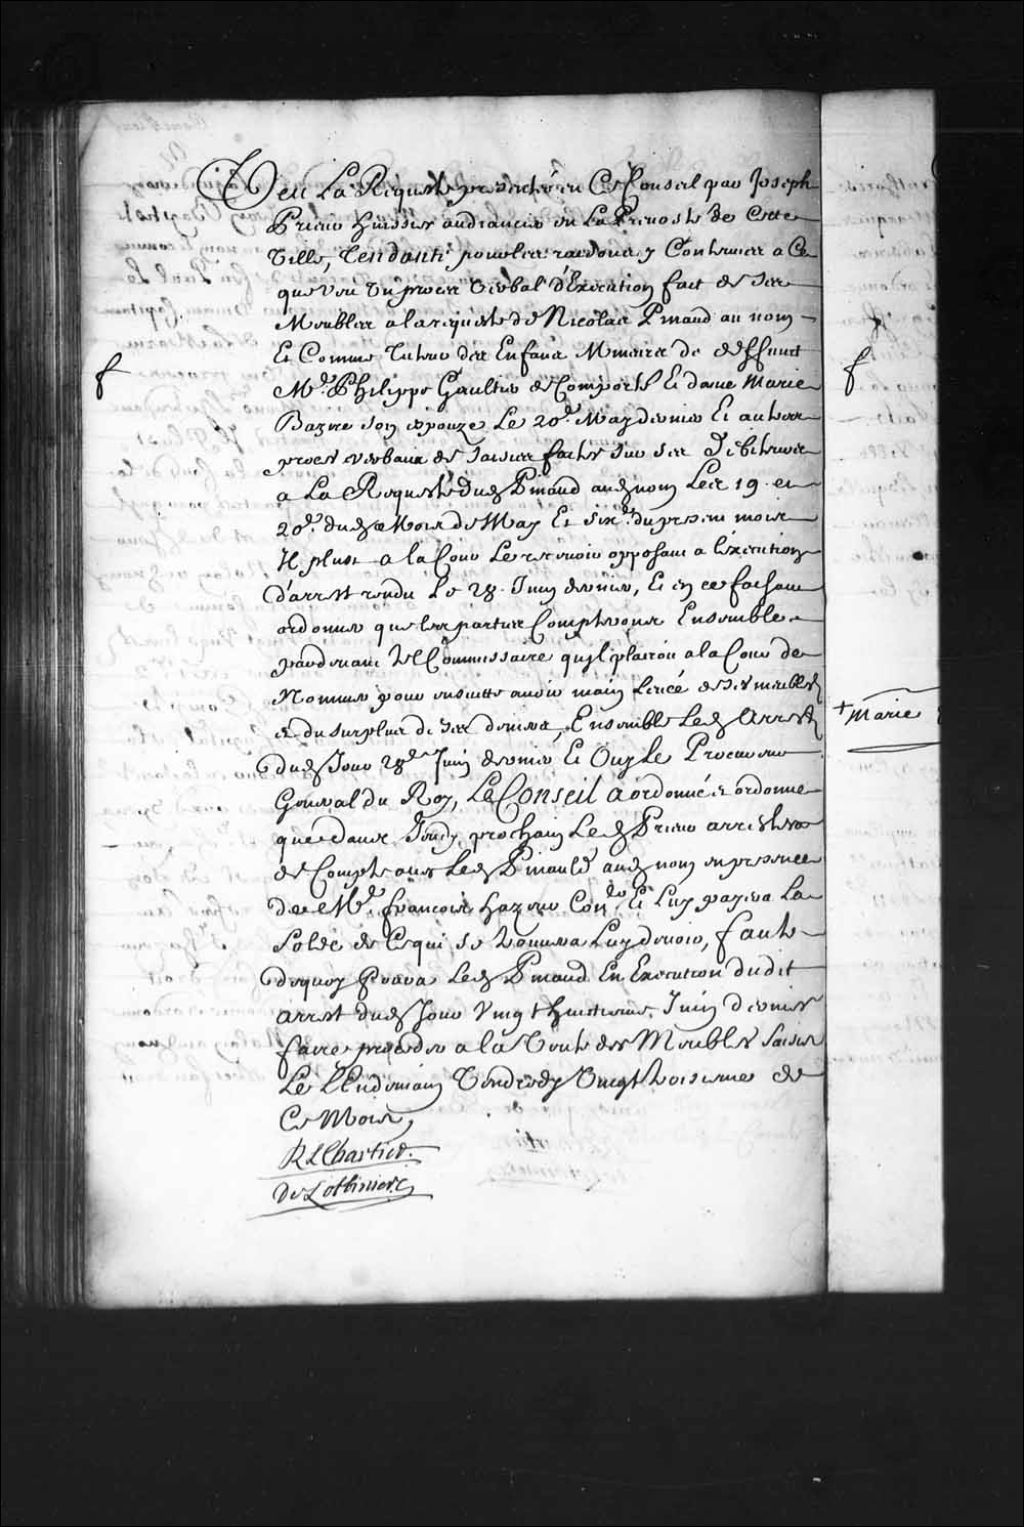 Veu La Requeste presentée en Ce Conseil par Joseph
Prieur huissier audiancier en La Prevosté de Cette
Ville, Tendante pour les raisons y Contenues a Ce
que veu Un procez Verbal d'Execution fait de ses
Meubles a la requeste de Nicolas Pinaud au nom
Et Comme Tuteur des Enfans Mineurs de deffunct
Me. Philippe Gaultier de Comporté Et dame Marie
Bazire son espouze Le 20e. May dernier Et autres
procez verbaux de saisies faites sur ses debiteurs
a La Requeste dud Pinaud aud nom Les 19 et
20e. dud Mois de May Et six.e du present mois
Il plust a la Cour Le recevoir opposant a l'execution
d'arrest rendu Le 28. Juin dernier, Et en ce faisant
ordonner que les parties Compteront Ensemble
pardevant tel Commissaire qu'il plairoit a la Cour de
Nommer pour ensuitte avoir main levée de ses meubles
et du surplus de ses deniers, Ensemble Led Arrest
dud Jour 28e Juin dernier Et Ouy Le Procureur
General du Roy, Le Conseil a ordonné et ordonne
que dans Jeudy prochain Led Prieur arrestera
de Compte avec Led Pinault aud nom en presence
de Me. françois hazeur Con.er Et Luy payera La
Solde de Ce qui se trouvera Luy devoir, faute
dequoy Poura Led Pinaud En Execution dudit
arrest dud Jour Vingt huitieme Juin dernier
faire proceder a la Vente des Meubles saisis
Le L'Endemain Vendredy Vingt troisieme de
Ce Mois,
R L Chartier.
De Lotbiniere
+ Marie